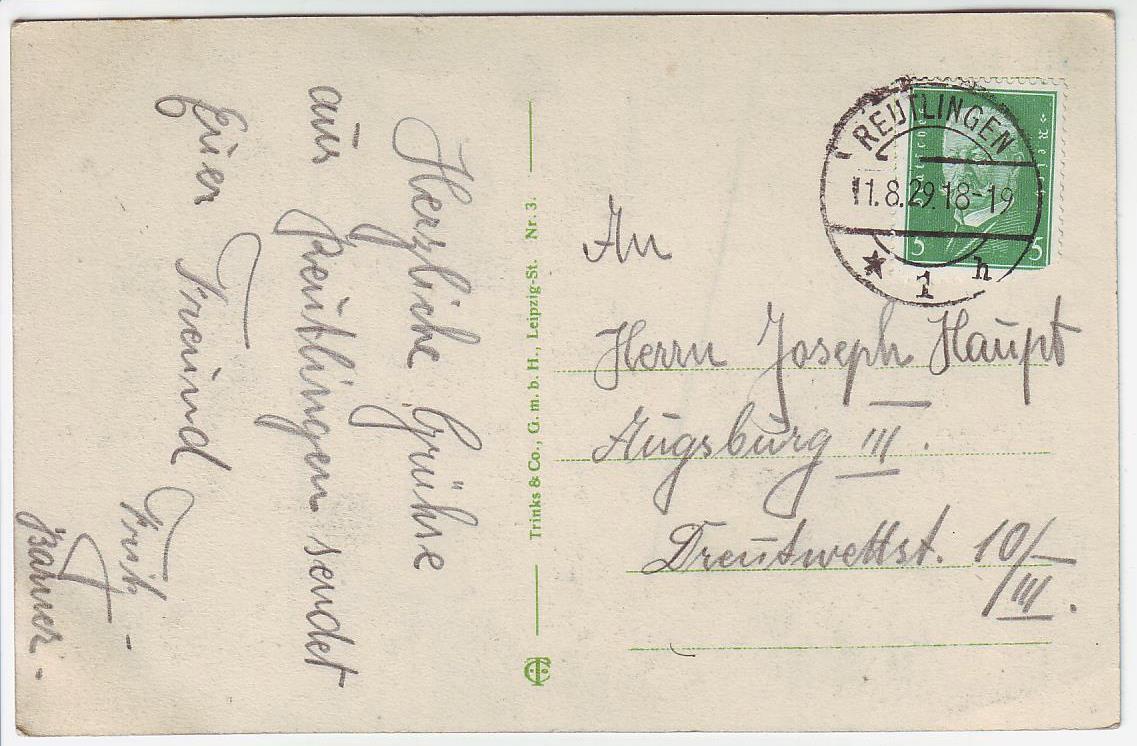 Herzliche Grühse
aus Reutlingen sendet
Euer Freund
Fritz
Trinks & Co., G. m. b. H., Leipzig-St. Nr. 3.
REUTLINGEN
11.8.29.18-19
* 1 h
5 5
An
Herrn Joseph Haupt
Augsburg III.
Dreutwettst. 10/III.